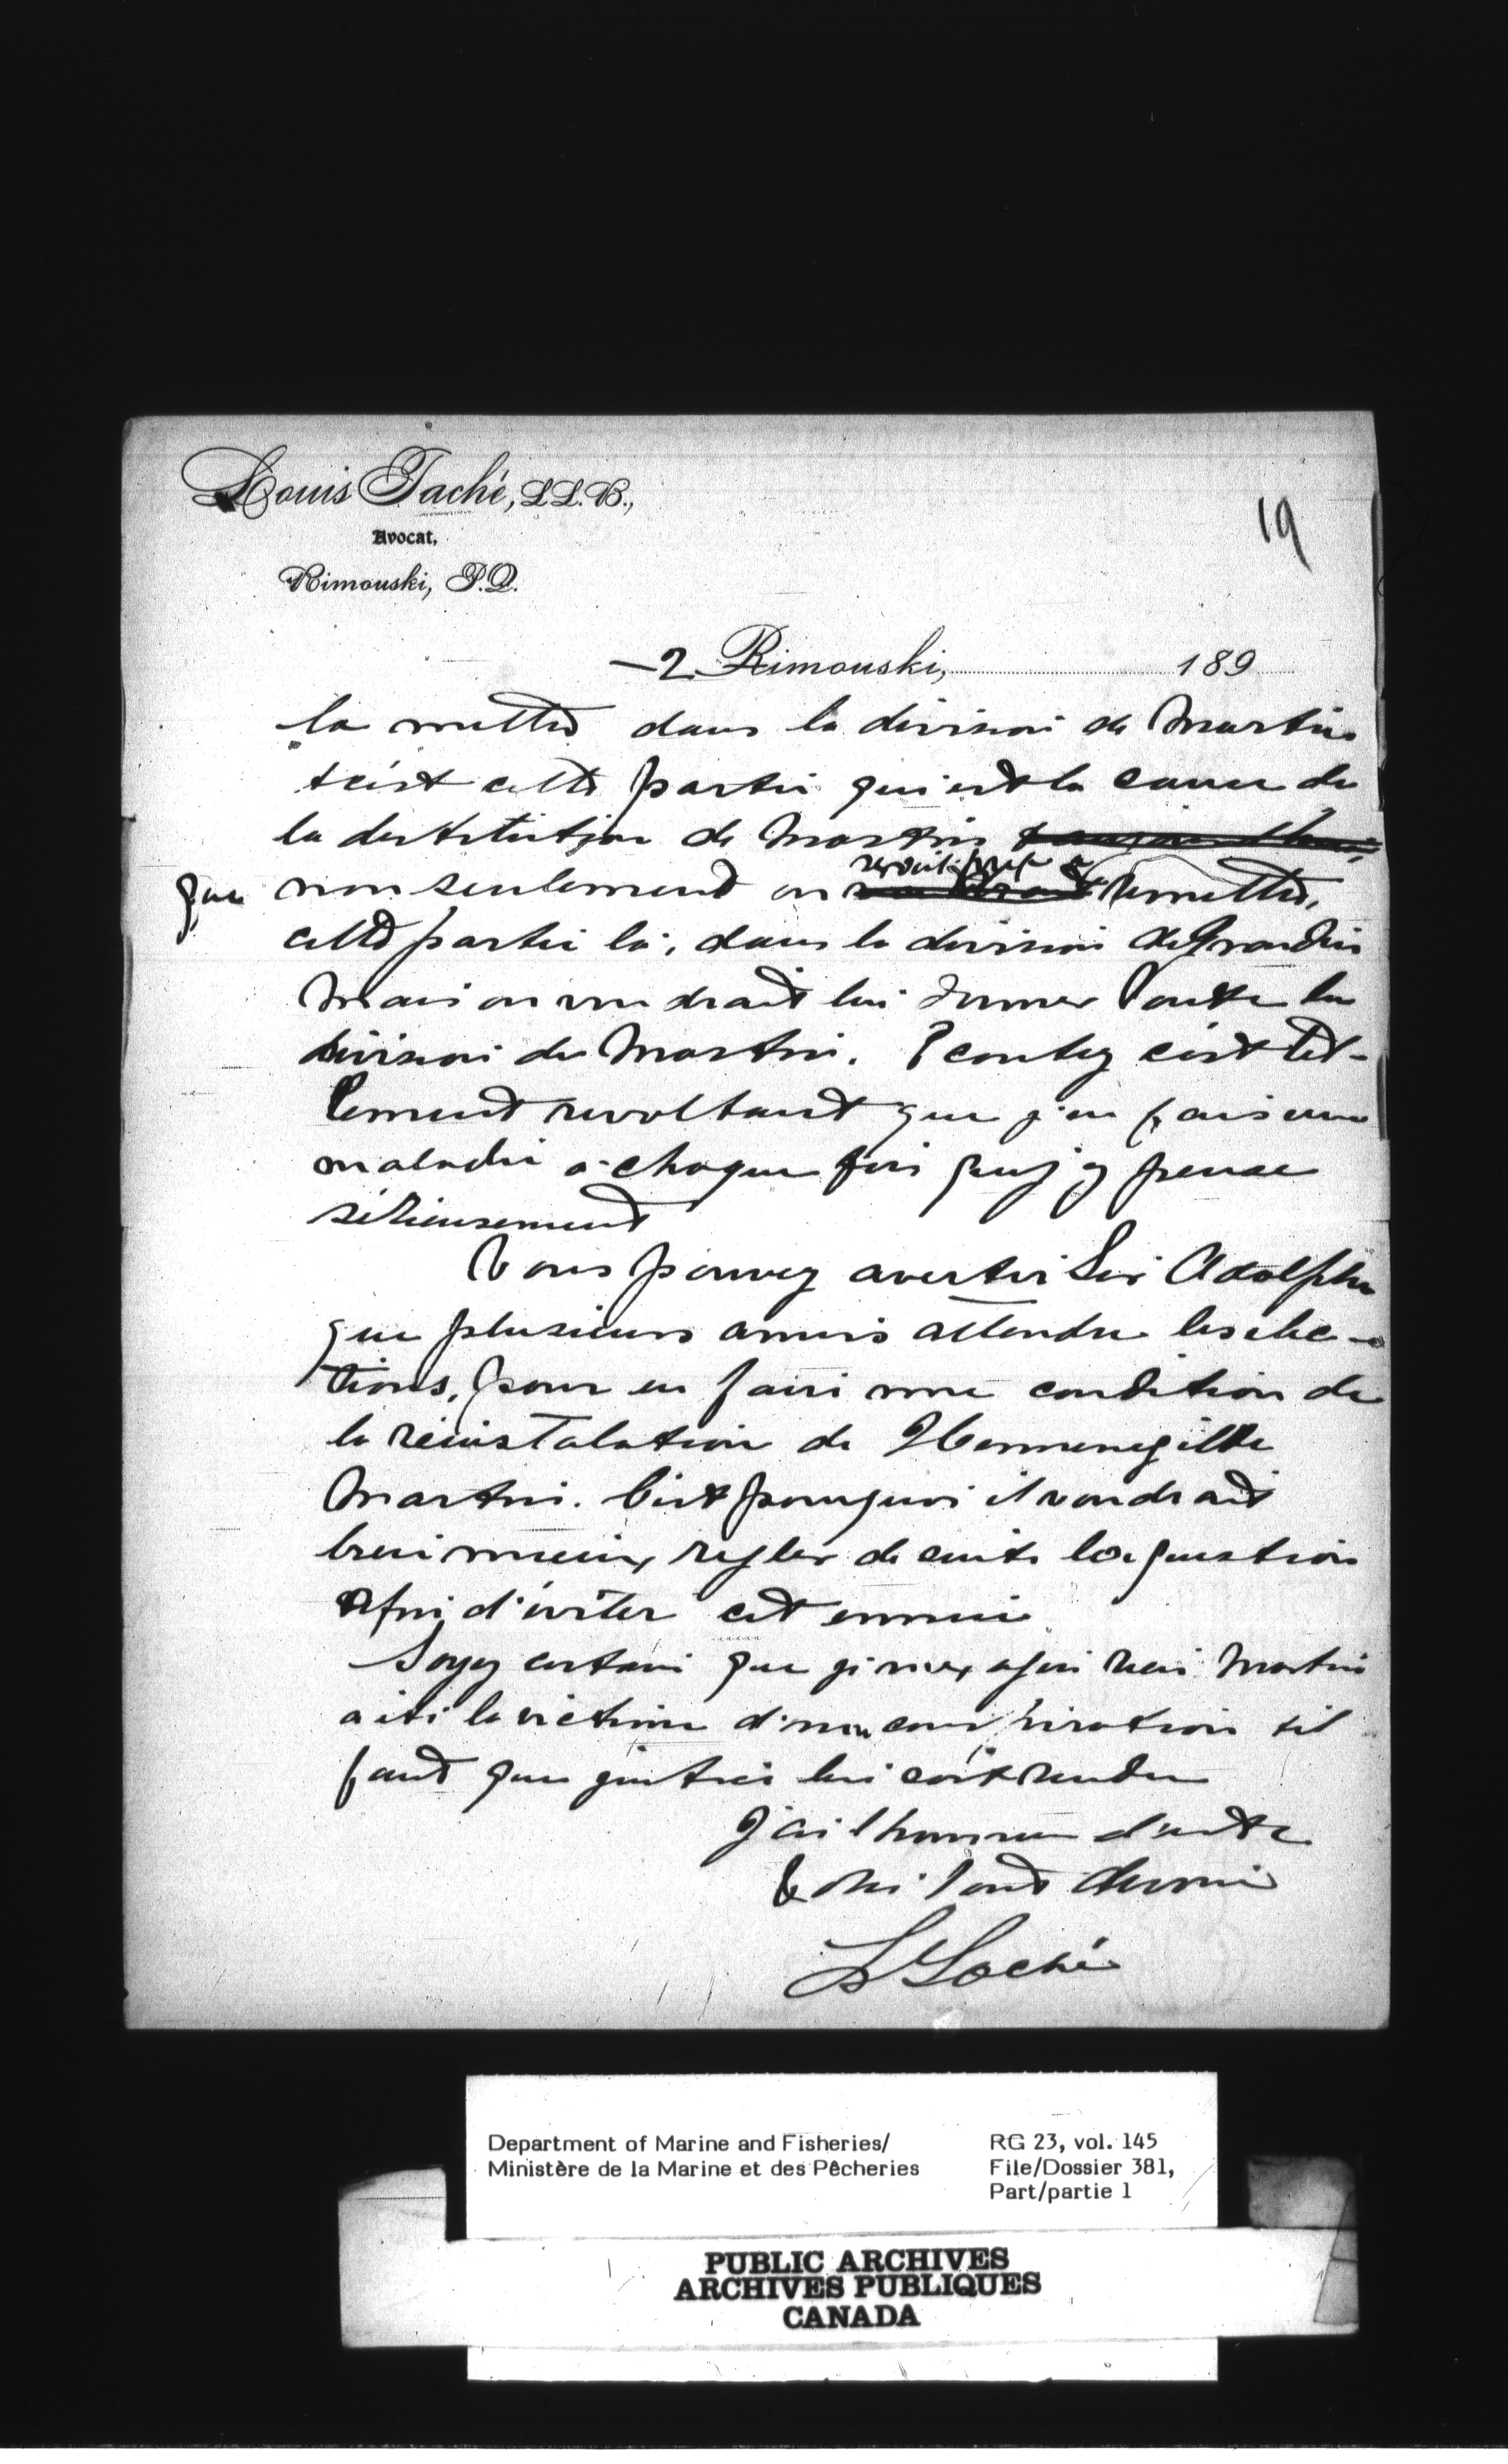 Louis Taché, LL.B.,
Avocat,
Rimouski, P.Q.
19
—2 Rimouski, 189
la mettre dans la division de Martin
& c'est cette partie qui est la cause de
la destitution de Martin
que non seulement on serait prêt à remettre,
cette partie là, dans la division de Grondin
Mais on voudrait lui donner toute la
division de Martin. Ecoutez c'est tel-
lement revoltant que j'en fais une
maladie a chaque fois que j'y pense
sérieusement
Vous pouvez avertir Sir Adolphe
que plusieurs amis attendre les elec-
tions, pour en faire une condition de
la réinstalation de Hermenegilde
Martin. C'est pourquoi il voudrait
bien mieux regler de suite la question
afin d'éviter cet ennuie
Soyez certain que je n'exagère rien Martin
a été la victime d'une conspiration & il
faut que justice lui soit rendue
J'ai l'honneur d'etre
Votre tout devoué
L Taché
Department of Marine and Fisheries/
Ministère de la Marine et des Pêcheries
RG 23, vol. 145
File/Dossier 381,
Part/partie 1
PUBLIC ARCHIVES
ARCHIVES PUBLIQUES
CANADA